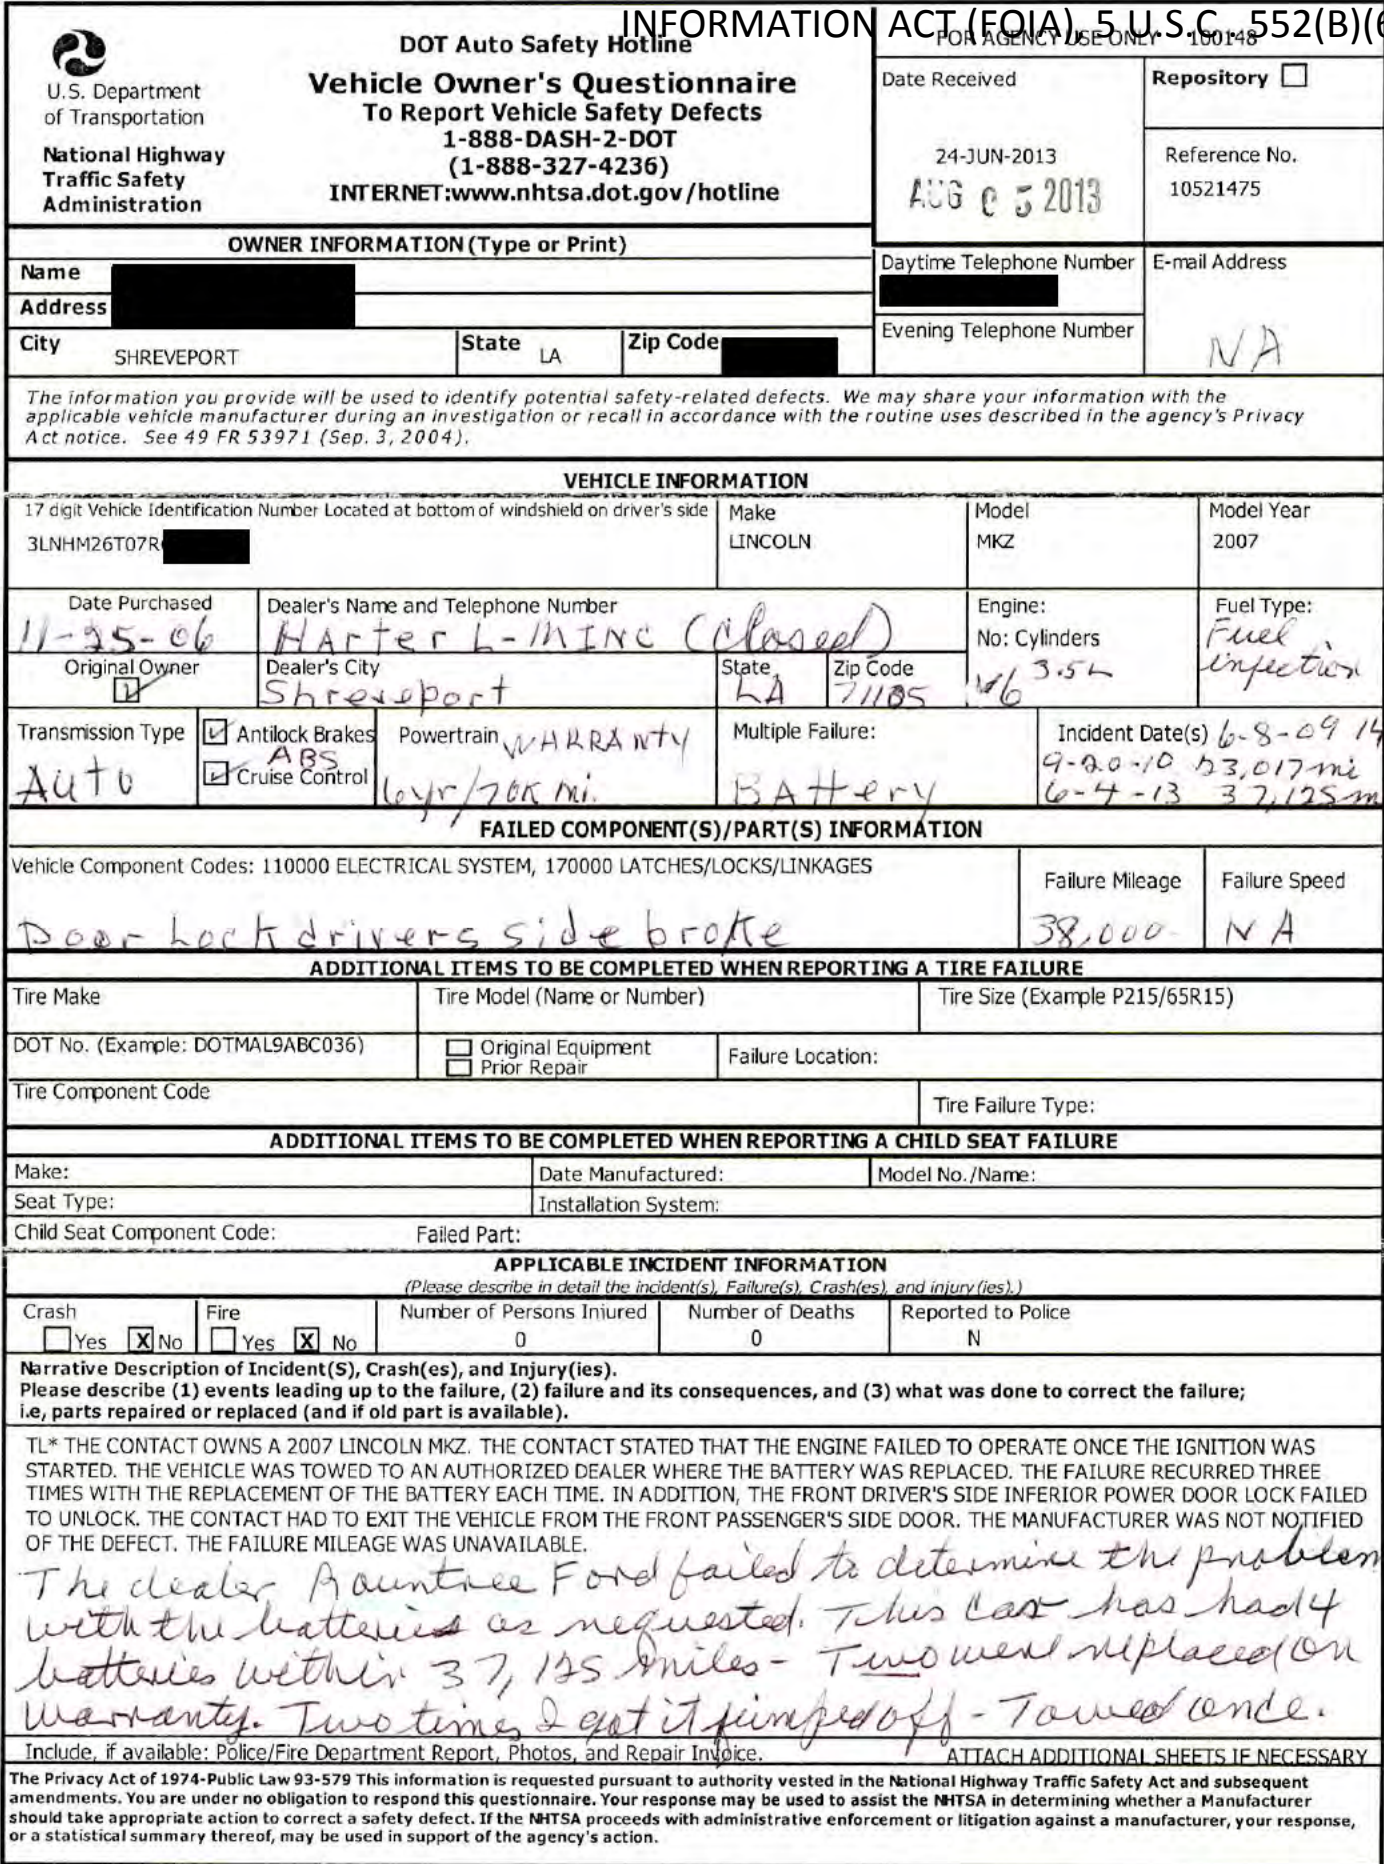 INFORMATION ACT (FOIA), 5 U.S.C. 552(B)(6
U.S. Department
of Transportation
National Highway
Traffic Safety
Administration
DOT Auto Safety Hotline
Vehicle Owner's Questionnaire
To Report Vehicle Safety Defects
1-888-DASH-2-DOT
(1-888-327-4236)
INTERNET:www.nhtsa.dot.gov/hotline
FOR AGENCY USE ONLY 100148
Date Received
24-JUN-2013
AUG 05 2013
Repository
Reference No.
10521475
OWNER INFORMATION (Type or Print)
Name
Address
City SHREVEPORT State LA Zip Code
Daytime Telephone Number
Evening Telephone Number
E-mail Address
NA
The information you provide will be used to identify potential safety-related defects. We may share your information with the
applicable vehicle manufacturer during an investigation or recall in accordance with the routine uses described in the agency's Privacy
Act notice. See 49 FR 53971 (Sep. 3, 2004).
VEHICLE INFORMATION
17 digit Vehicle Identification Number Located at bottom of windshield on driver's side
3LNHM26T07R
Make
LINCOLN
Model
MKZ
Model Year
2007
Date Purchased
11-25-06
Dealer's Name and Telephone Number
Harter L-M INC (Closed)
Engine:
No: Cylinders
V6 3.5L
Fuel Type:
Fuel
injection
Original Owner
Dealer's City
Shreveport
State
LA
Zip Code
71105
Transmission Type
Auto
Antilock Brakes
ABS
Cruise Control
Powertrain WARRANTY
6yr/70K mi.
Multiple Failure:
BAttery
Incident Date(s) 6-8-09 14
9-20-10 23,017 mi
6-4-13 37,125 m
FAILED COMPONENT(S)/PART(S) INFORMATION
Vehicle Component Codes: 110000 ELECTRICAL SYSTEM, 170000 LATCHES/LOCKS/LINKAGES
Door Lock drivers side broke
Failure Mileage
38,000
Failure Speed
NA
ADDITIONAL ITEMS TO BE COMPLETED WHEN REPORTING A TIRE FAILURE
Tire Make
Tire Model (Name or Number)
Tire Size (Example P215/65R15)
DOT No. (Example: DOTMAL9ABC036)
Original Equipment
Prior Repair
Failure Location:
Tire Component Code
Tire Failure Type:
ADDITIONAL ITEMS TO BE COMPLETED WHEN REPORTING A CHILD SEAT FAILURE
Make:
Date Manufactured:
Model No./Name:
Seat Type:
Installation System:
Child Seat Component Code:
Failed Part:
APPLICABLE INCIDENT INFORMATION
(Please describe in detail the incident(s), Failure(s), Crash(es), and injury(ies).)
Crash
Yes X No
Fire
Yes X No
Number of Persons Injured
0
Number of Deaths
0
Reported to Police
N
Narrative Description of Incident(S), Crash(es), and Injury(ies).
Please describe (1) events leading up to the failure, (2) failure and its consequences, and (3) what was done to correct the failure;
i.e, parts repaired or replaced (and if old part is available).
TL* THE CONTACT OWNS A 2007 LINCOLN MKZ. THE CONTACT STATED THAT THE ENGINE FAILED TO OPERATE ONCE THE IGNITION WAS
STARTED. THE VEHICLE WAS TOWED TO AN AUTHORIZED DEALER WHERE THE BATTERY WAS REPLACED. THE FAILURE RECURRED THREE
TIMES WITH THE REPLACEMENT OF THE BATTERY EACH TIME. IN ADDITION, THE FRONT DRIVER'S SIDE INFERIOR POWER DOOR LOCK FAILED
TO UNLOCK. THE CONTACT HAD TO EXIT THE VEHICLE FROM THE FRONT PASSENGER'S SIDE DOOR. THE MANUFACTURER WAS NOT NOTIFIED
OF THE DEFECT. THE FAILURE MILEAGE WAS UNAVAILABLE.
The dealer Rountree Ford failed to determine the problem
with the batteries as requested. This car has had 4
batteries within 37,125 miles - Two were replaced on
warranty. Two times I got it jumped off - Towed once.
Include, if available: Police/Fire Department Report, Photos, and Repair Invoice.
ATTACH ADDITIONAL SHEETS IF NECESSARY
The Privacy Act of 1974-Public Law 93-579 This information is requested pursuant to authority vested in the National Highway Traffic Safety Act and subsequent
amendments. You are under no obligation to respond this questionnaire. Your response may be used to assist the NHTSA in determining whether a Manufacturer
should take appropriate action to correct a safety defect. If the NHTSA proceeds with administrative enforcement or litigation against a manufacturer, your response,
or a statistical summary thereof, may be used in support of the agency's action.